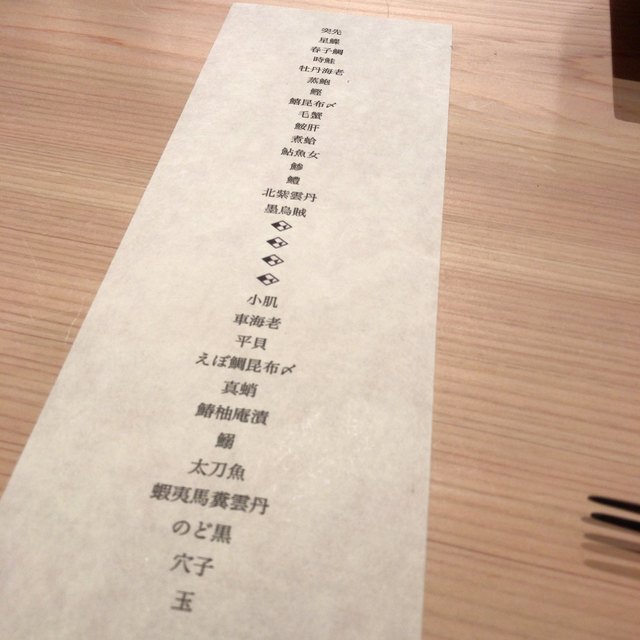 突先
星鰈
春子鯛
時鮭
牡丹海老
蒸鮑
鰹
鱚昆布〆
毛蟹
鮟肝
煮蛤
鮎魚女
鯵
鱧
北紫雲丹
墨烏賊
小肌
車海老
平貝
えぼ鯛昆布〆
真蛸
鰆柚庵漬
鰯
太刀魚
蝦夷馬糞雲丹
のど黒
穴子
玉